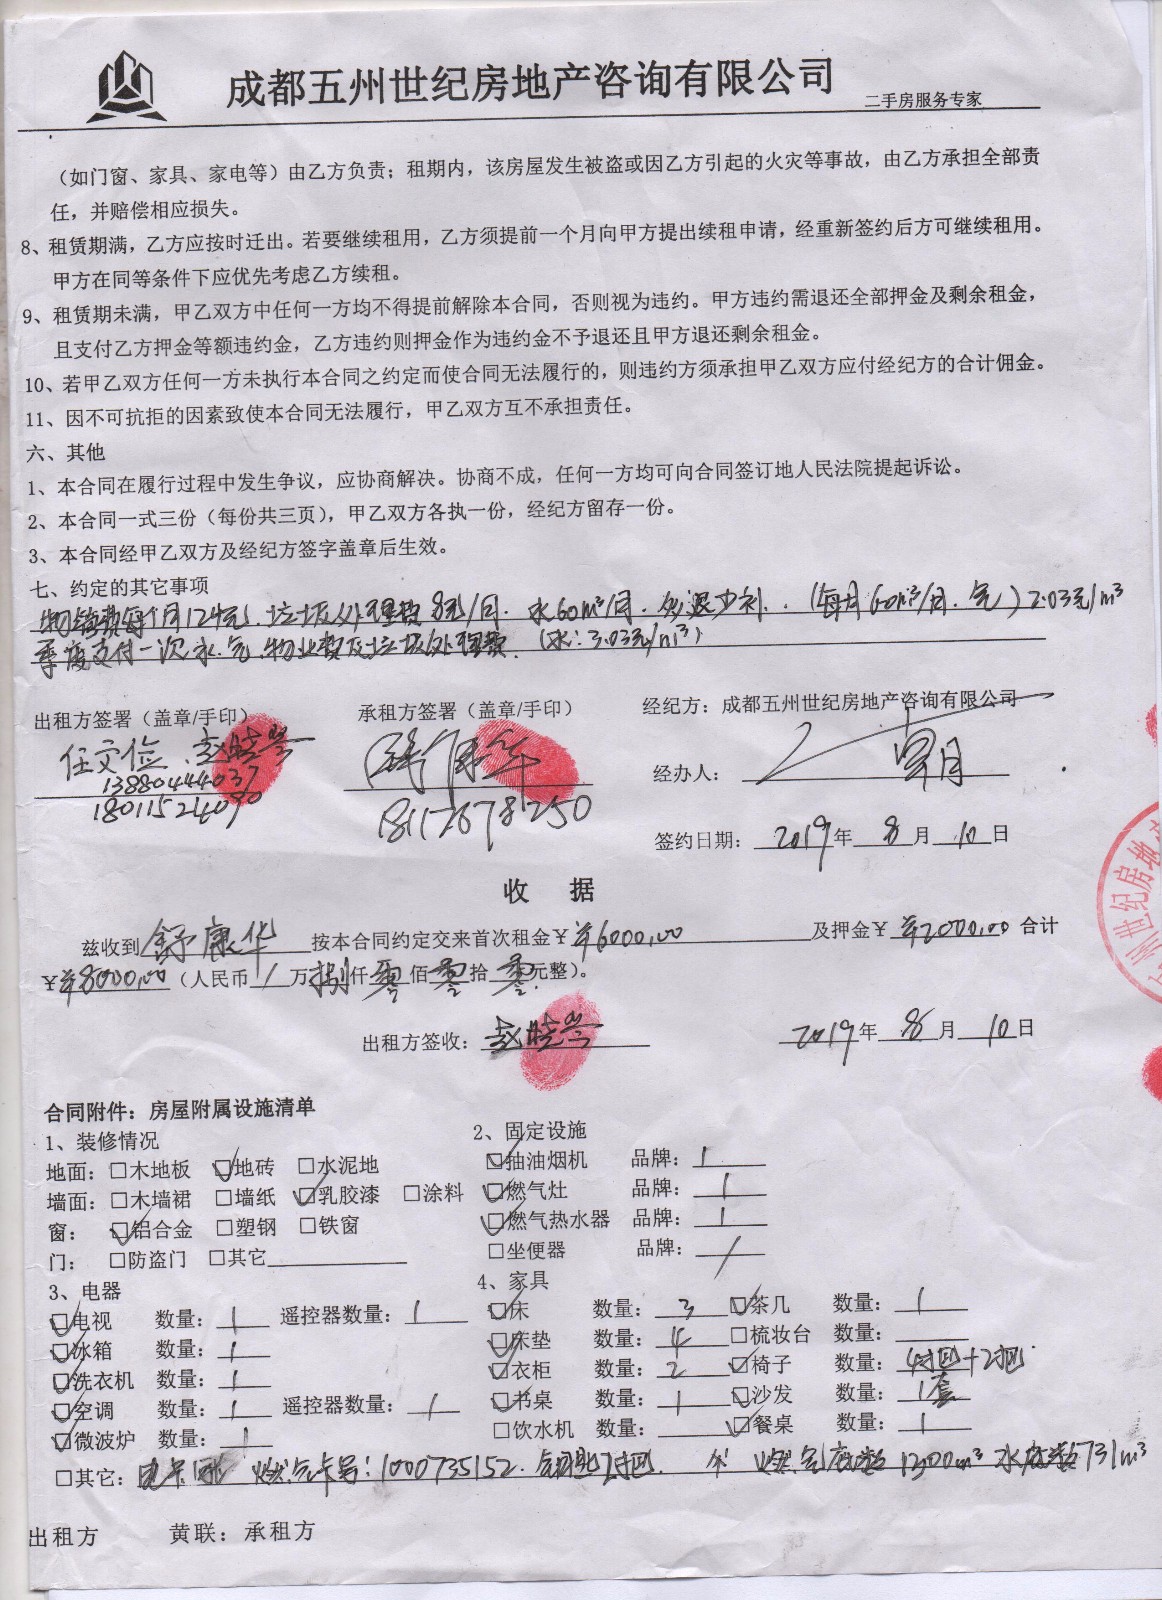 成都五州世纪房地产咨询有限公司 二手房服务专家
（如门窗、家具、家电等）由乙方负责；租期内，该房屋发生被盗或因乙方引起的火灾等事故，由乙方承担全部责
任，并赔偿相应损失。
8、租赁期满，乙方应按时迁出。若要继续租用，乙方须提前一个月向甲方提出续租申请，经重新签约后方可继续租用。
甲方在同等条件下应优先考虑乙方续租。
9、租赁期未满，甲乙双方中任何一方均不得提前解除本合同，否则视为违约。甲方违约需退还全部押金及剩余租金，
且支付乙方押金等额违约金，乙方违约则押金作为违约金不予退还且甲方退还剩余租金。
10、若甲乙双方任何一方未执行本合同之约定而使合同无法履行的，则违约方须承担甲乙双方应付经纪方的合计佣金。
11、因不可抗拒的因素致使本合同无法履行，甲乙双方互不承担责任。
六、其他
1、本合同在履行过程中发生争议，应协商解决。协商不成，任何一方均可向合同签订地人民法院提起诉讼。
2、本合同一式三份（每份共三页），甲乙双方各执一份，经纪方留存一份。
3、本合同经甲乙双方及经纪方签字盖章后生效。
七、约定的其它事项
物管费每个月124元．垃圾处理费8元/月．水60m³/月．多退少补．（每月60m³/月．气）2.03元/m³
季度支付一次水．气．物业费及垃圾处理费．（水：3.03元/m³）
出租方签署（盖章/手印） 承租方签署（盖章/手印） 经纪方：成都五州世纪房地产咨询有限公司
任文俭
13880444037
18011524090
18117678250
经办人：
签约日期：2019年8月10日
收 据
兹收到舒康华按本合同约定交来首次租金￥￥6000.00及押金￥￥2000.00合计
￥￥8000.00（人民币/万捌仟零佰零拾零元整）。
出租方签收： 2019年8月10日
合同附件：房屋附属设施清单
1、装修情况 2、固定设施
地面：□木地板 ☑地砖 □水泥地 ☑抽油烟机 品牌：1
墙面：□木墙裙 □墙纸 ☑乳胶漆 □涂料 ☑燃气灶 品牌：1
窗：☑铝合金 □塑钢 □铁窗 ☑燃气热水器 品牌：1
门：□防盗门 □其它 □坐便器 品牌：/
3、电器 4、家具
☑电视 数量：1 遥控器数量：1 ☑床 数量：3 ☑茶几 数量：1
☑冰箱 数量：1 ☑床垫 数量：4 □梳妆台 数量：
☑洗衣机 数量：1 ☑衣柜 数量：2 ☑椅子 数量：4把+2把
☑空调 数量：1 遥控器数量：1 ☑书桌 数量：1 ☑沙发 数量：1套
☑微波炉 数量：1 □饮水机 数量： ☑餐桌 数量：1
□其它：电卡 燃气卡号：1000735152．钥匙2把． 燃气底数1300m³ 水底数731m³
出租方 黄联：承租方
州世纪房地产